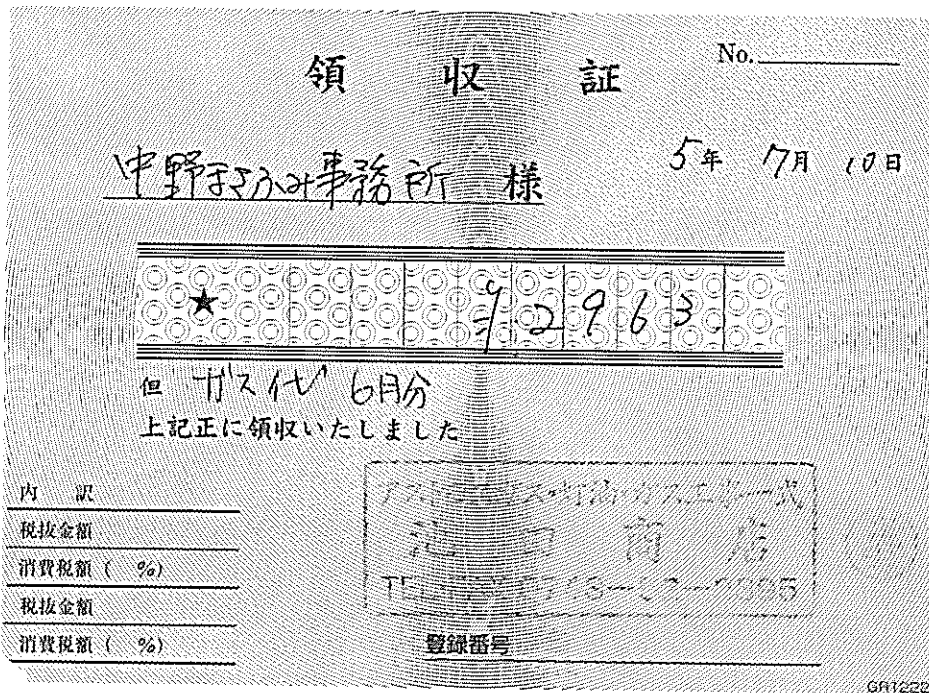 領収証
No.
中野まさふみ事務所 様
5年 7月 10日
★ ¥2963.
但 ガス代 6月分
上記正に領収いたしました
内 訳
税抜金額
消費税額( %)
税抜金額
消費税額( %)
商店
登録番号